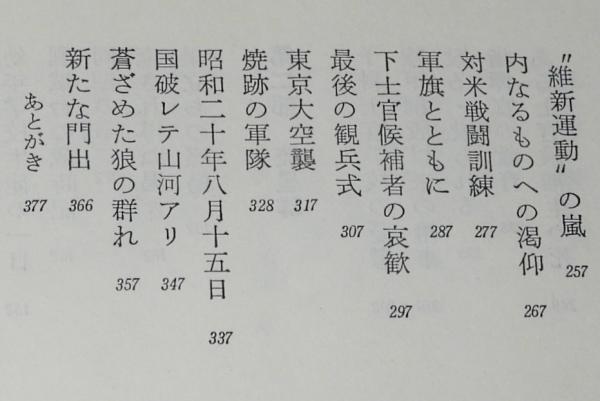 〝維新運動〟の嵐 257
内なるものへの渇仰 267
対米戦闘訓練 277
軍旗とともに 287
下士官候補者の哀歓 297
最後の観兵式 307
東京大空襲 317
焼跡の軍隊 328
昭和二十年八月十五日 337
国破レテ山河アリ 347
蒼ざめた狼の群れ 357
新たな門出 366
あとがき 377